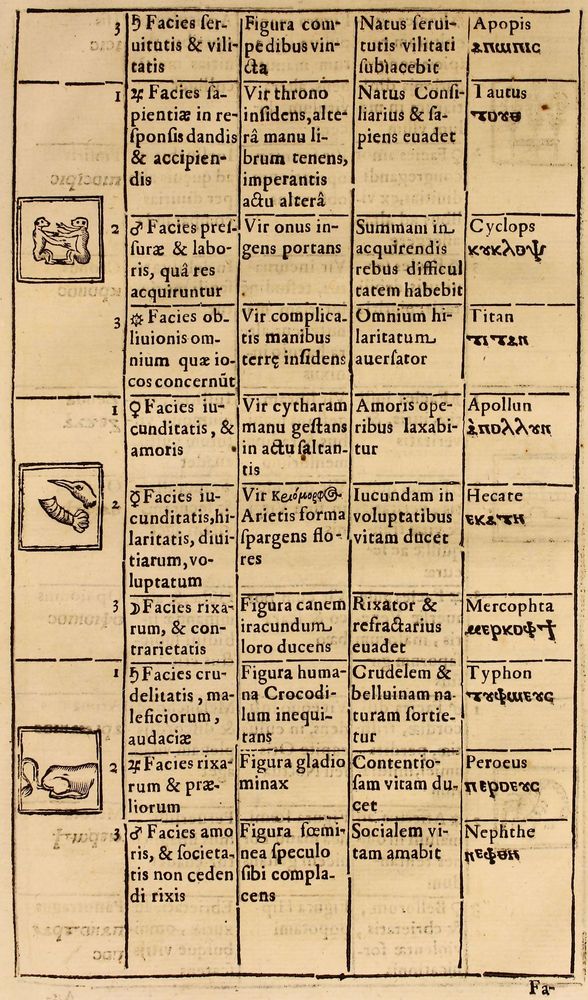 3
♄ Facies ſer-
uitutis & vili-
tatis
Figura com-
pedibus vin-
cta
Natus ſerui-
tutis vilitati
ſubiacebit
Apopis
ⲁⲡⲱⲡⲓⲥ
1
♃ Facies ſa-
pientiæ in re-
ſponſis dandis
& accipien-
dis
Vir throno
inſidens, alte-
râ manu li-
brum tenens,
imperantis
actu alterâ
Natus Conſi-
liarius & ſa-
piens euadet
Tautus
ⲧⲟⲩⲑ
2
♂ Facies preſ-
ſuræ & labo-
ris, quâ res
acquiruntur
Vir onus in-
gens portans
Summam in
acquirendis
rebus difficul
tatem habebit
Cyclops
ⲕⲩⲕⲗⲟⲯ
3
☼ Facies ob-
liuionis om-
nium quæ io-
cos concernũt
Vir complica-
tis manibus
terrę inſidens
Omnium hi-
laritatum
auerſator
Titan
ⲧⲓⲧⲁⲛ
1
♀ Facies iu-
cunditatis, &
amoris
Vir cytharam
manu geſtans
in actu ſaltan-
tis
Amoris ope-
ribus laxabi-
tur
Apollun
ⲁⲡⲟⲗⲗⲟⲩⲛ
2
☿ Facies iu-
cunditatis, hi-
laritatis, diui-
tiarum, vo-
luptatum
Vir κριόμορφος
Arietis forma
ſpargens flo-
res
Iucundam in
voluptatibus
vitam ducet
Hecate
ⲉⲕⲁⲧⲏ
3
☽ Facies rixa-
rum, & con-
trarietatis
Figura canem
iracundum
loro ducens
Rixator &
refractarius
euadet
Mercophta
ⲙⲉⲣⲕⲟⲫⲧ
1
♄ Facies cru-
delitatis, ma-
leficiorum,
audaciæ
Figura huma-
na Crocodi-
lum inequi-
tans
Crudelem &
belluinam na-
turam ſortie-
tur
Typhon
ⲧⲩⲫⲱⲉⲩⲥ
2
♃ Facies rixa-
rum & præ-
liorum
Figura gladio
minax
Contentio-
ſam vitam du-
cet
Peroeus
ⲡⲉⲣⲟⲉⲩⲥ
3
♂ Facies amo
ris, & ſocieta-
tis non ceden
di rixis
Figura fœmi-
nea ſpeculo
ſibi compla-
cens
Socialem vi-
tam amabit
Nephthe
ⲛⲉⲫⲑⲏ
Fa-